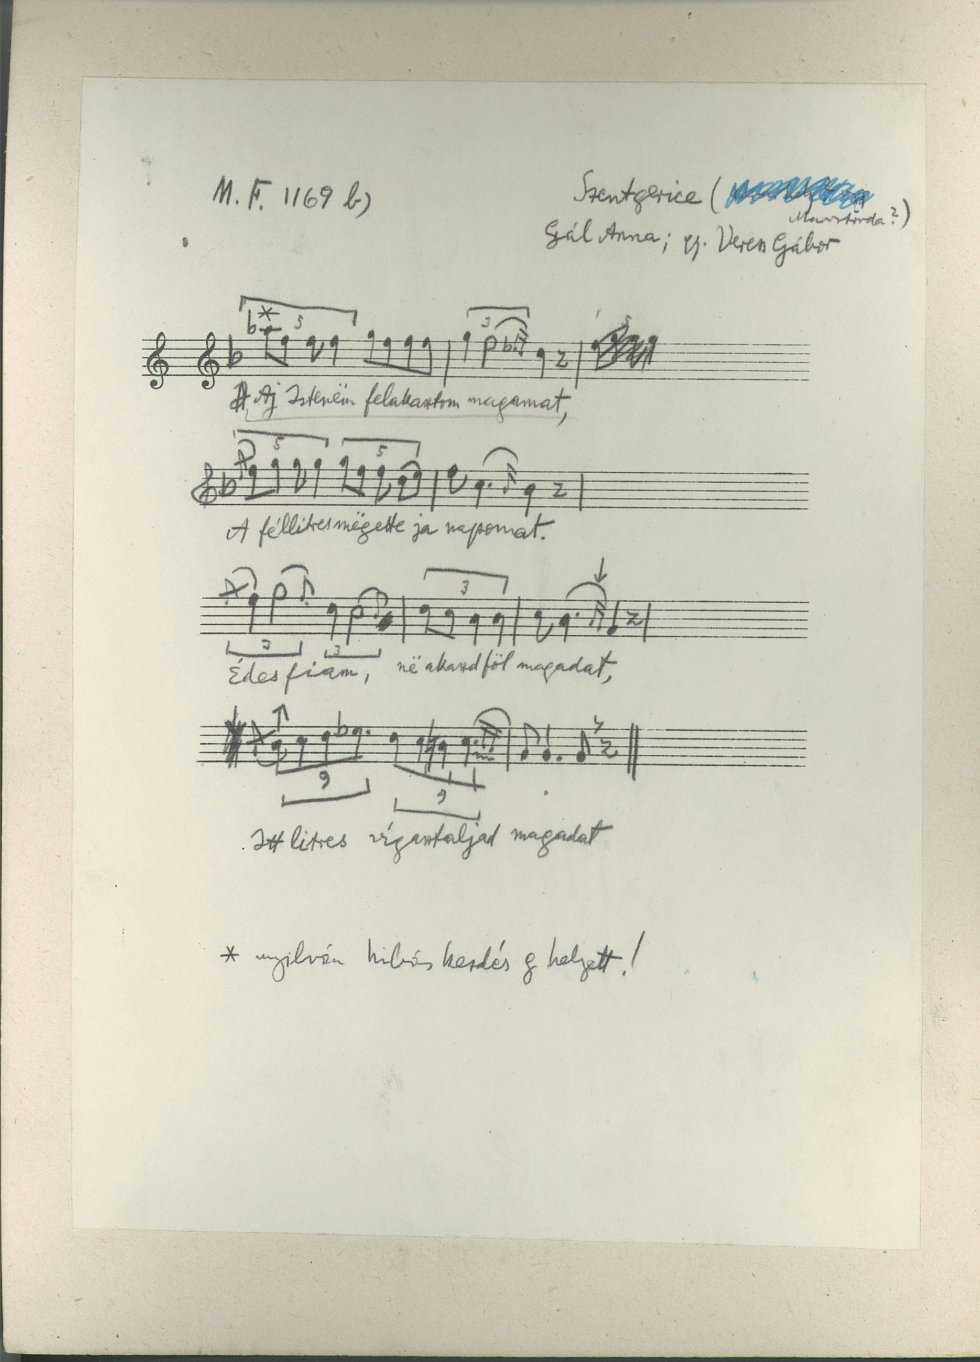 M. F. 1169 b)
Szentgerice (
Marostorda?)
Gál Anna; gy. Veress Gábor
Aj Istenëm felakasztom magamat,
A féllitres mëgëtte ja napomat.
Édes fiam, në akaszd föl magadat,
Itt litres vígasztaljad magadat
* nyilván hibás kezdés g helyett!